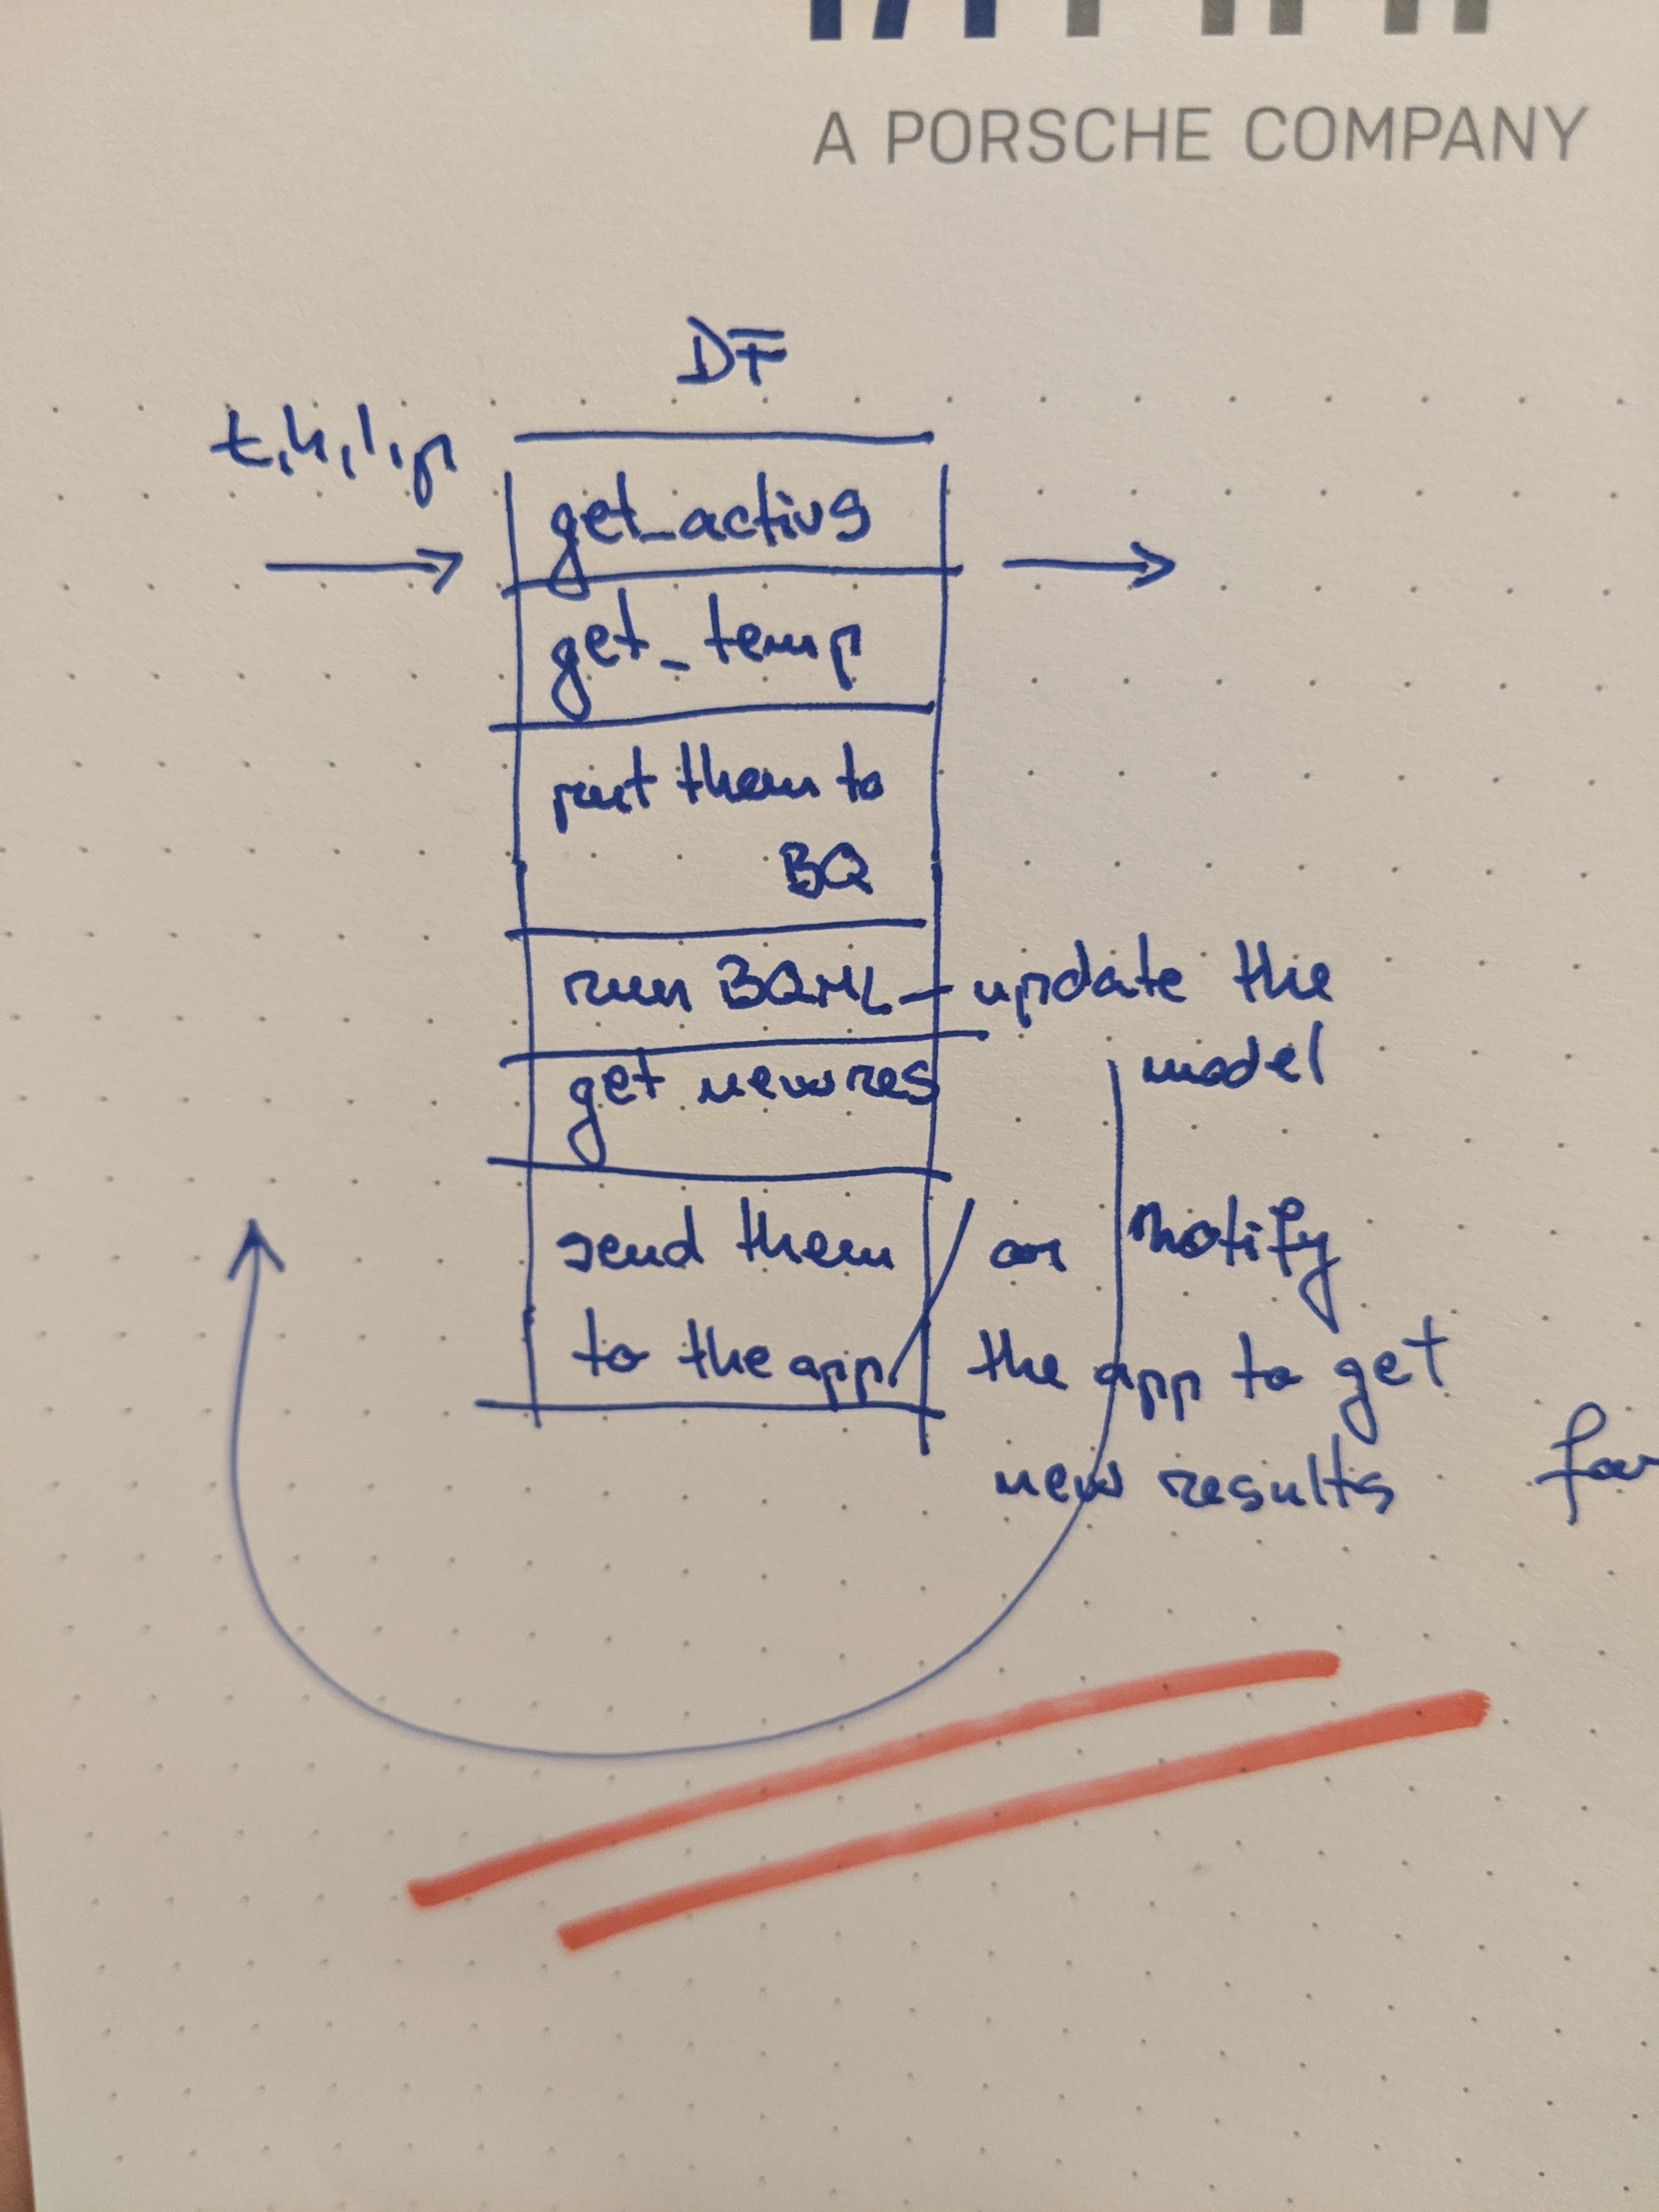 A PORSCHE COMPANY
DF
t,h,l,p
get_activs
get_temp
put them to
BQ
run BQML - update the
model
get new res
send them / or notify
to the app the app to get
new results